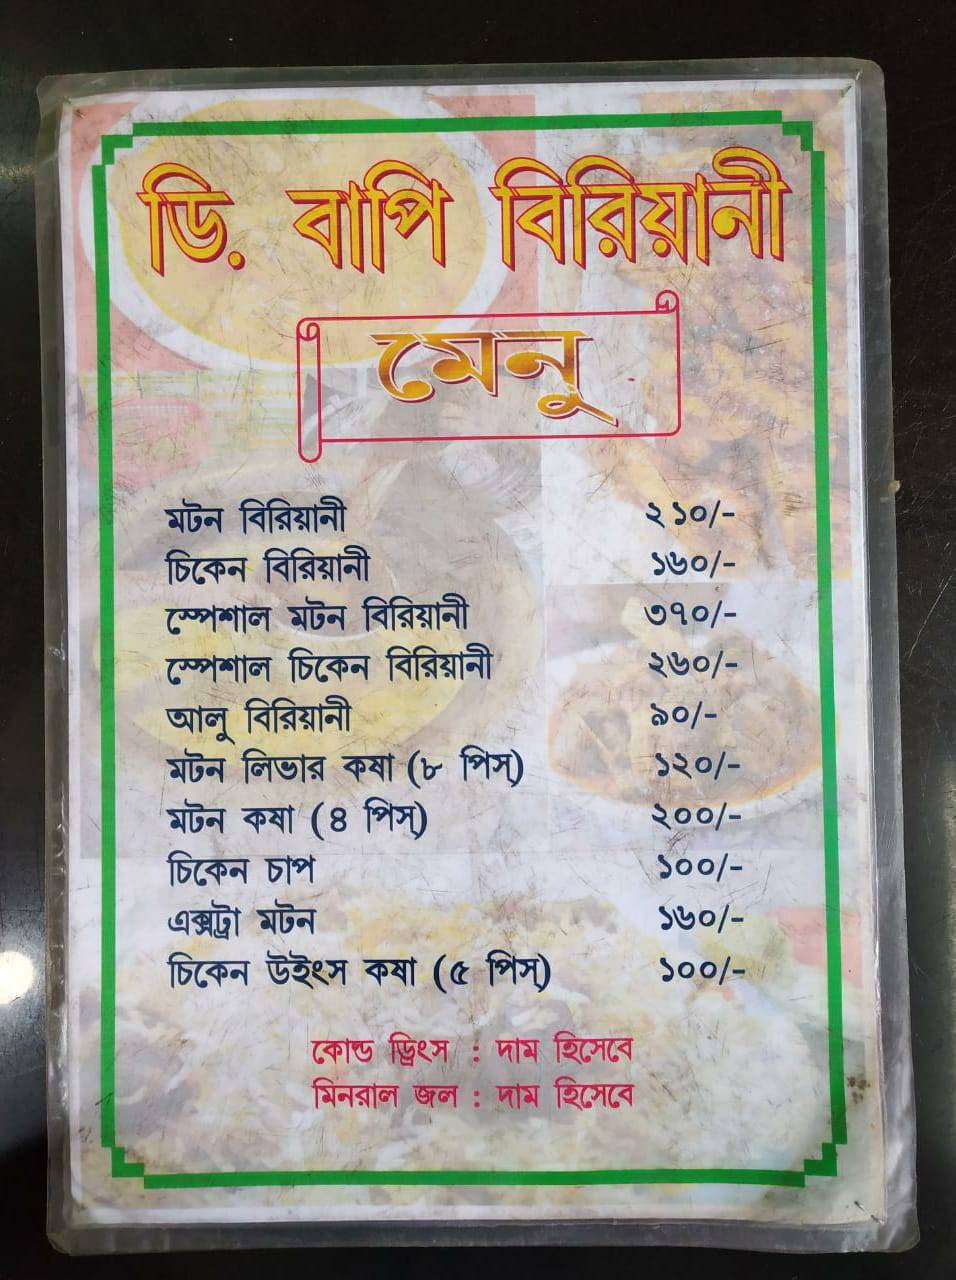 ডি. বাপি বিরিয়ানী
মেনু
মটন বিরিয়ানী ২১০/-
চিকেন বিরিয়ানী ১৬০/-
স্পেশাল মটন বিরিয়ানী ৩৭০/-
স্পেশাল চিকেন বিরিয়ানী ২৬০/-
আলু বিরিয়ানী ৯০/-
মটন লিভার কষা (৮ পিস্) ১২০/-
মটন কষা (৪ পিস্) ২০০/-
চিকেন চাপ ১০০/-
এক্সট্রা মটন ১৬০/-
চিকেন উইংস কষা (৫ পিস্) ১০০/-
কোল্ড ড্রিংস : দাম হিসেবে
মিনরাল জল : দাম হিসেবে